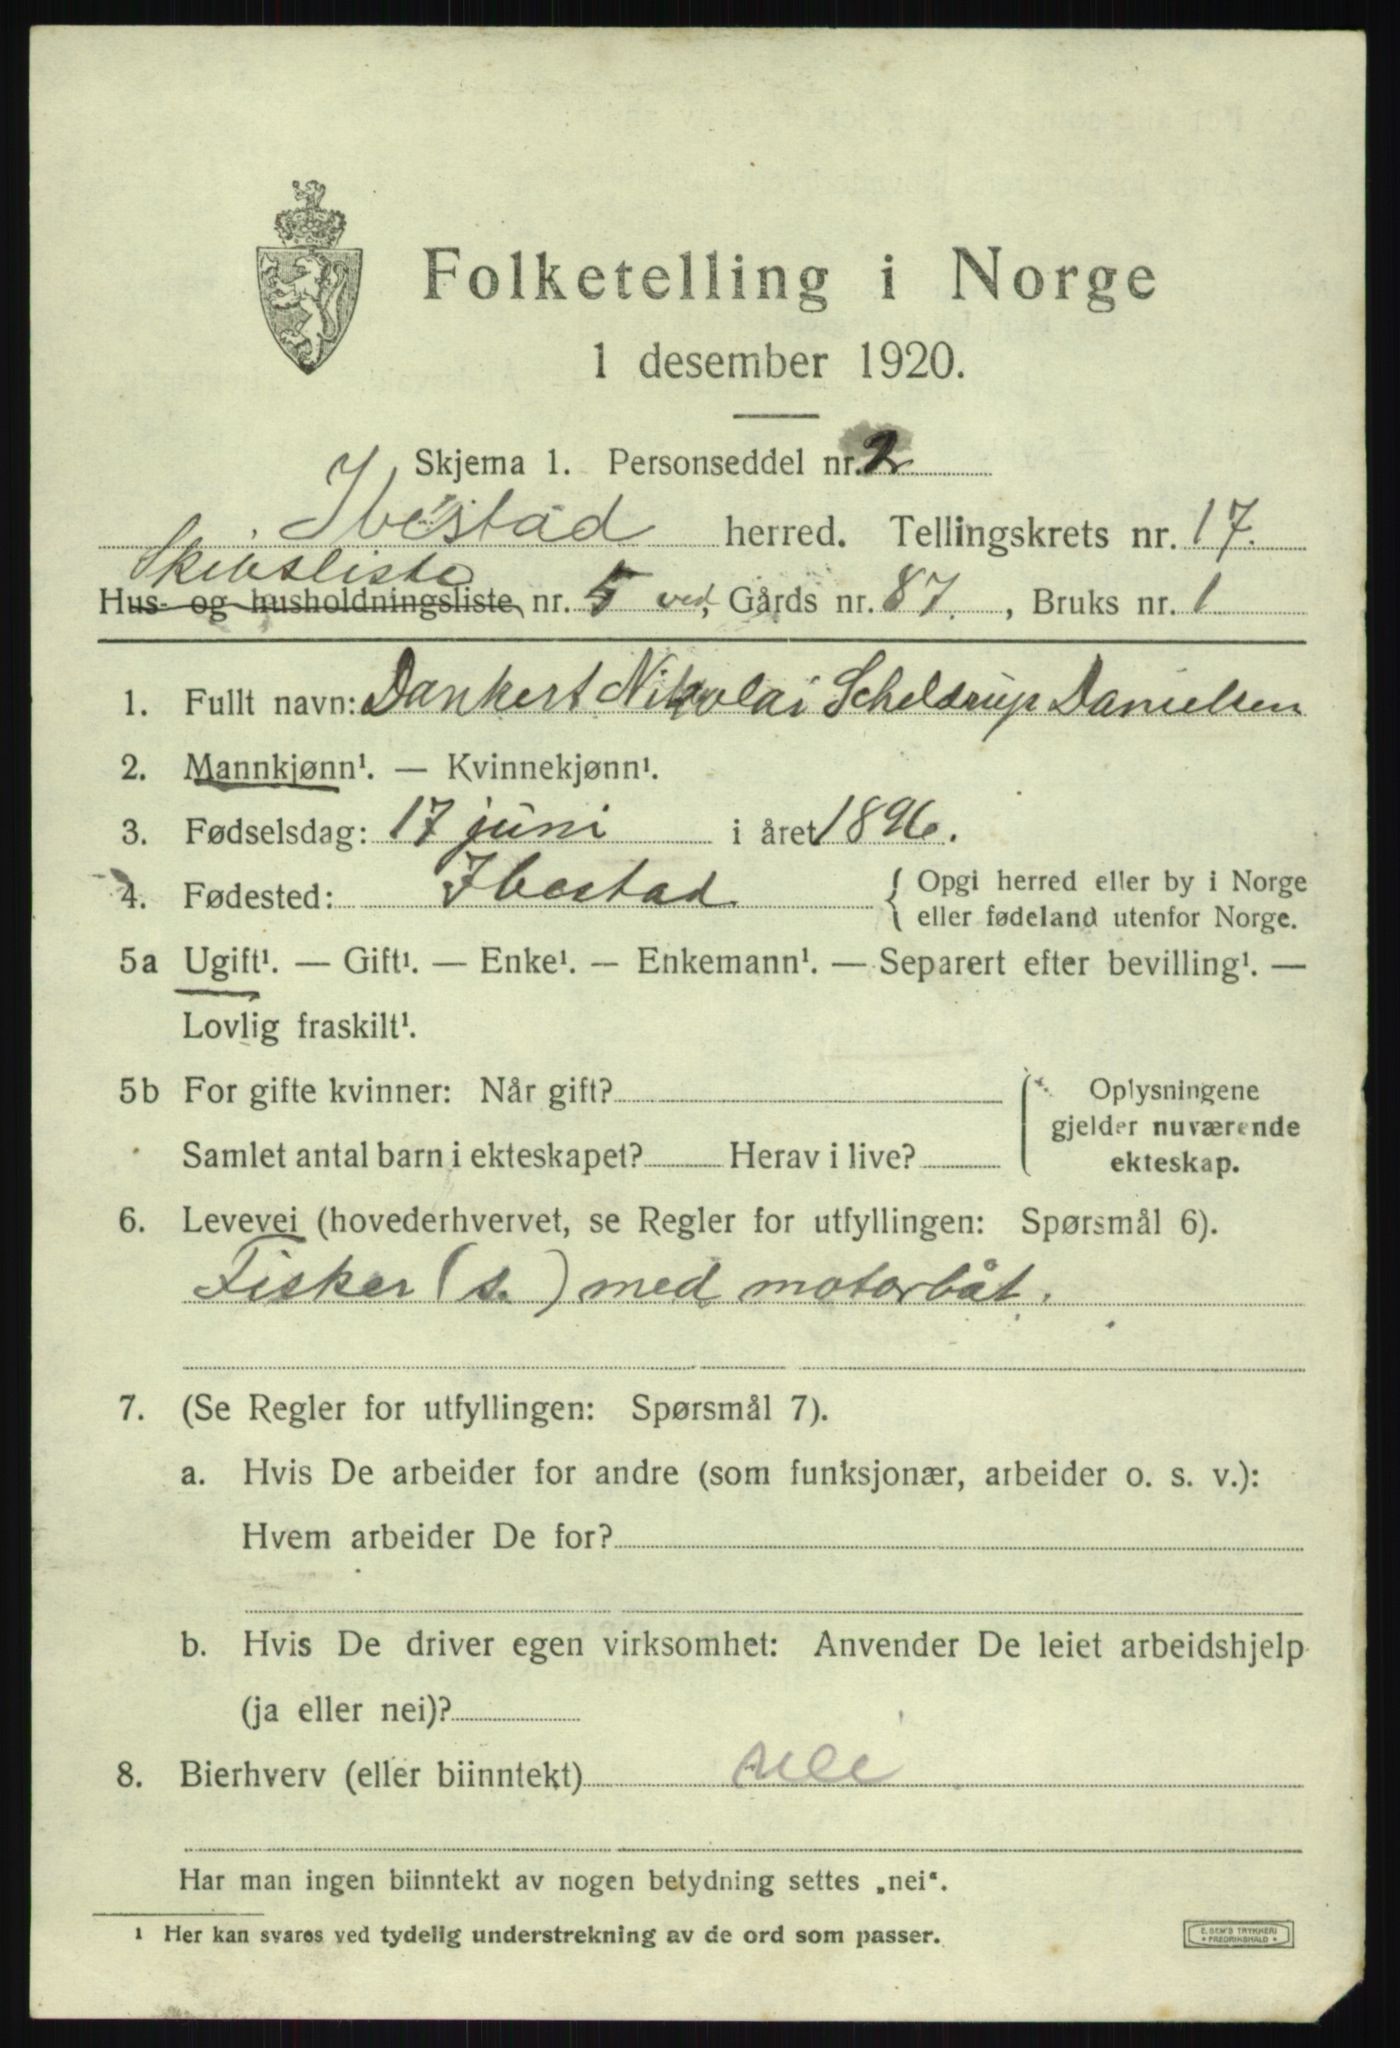 Folketelling i Norge
1 desember 1920.
Skjema 1. Personseddel nr. 2
Ibestad herred. Tellingskrets nr. 17.
Skibsliste
Hus- og husholdningsliste nr. 5 ved, Gårds nr. 87., Bruks nr. 1
1. Fullt navn: Dankert Nikolai Scheldrup Danielsen
2. Mannkjønn¹. — Kvinnekjønn¹.
3. Fødselsdag: 17 juni i året 1896.
4. Fødested: Ibestad { Opgi herred eller by i Norge
eller fødeland utenfor Norge.
5a Ugift¹. — Gift¹. — Enke¹. — Enkemann¹. — Separert efter bevilling¹. —
Lovlig fraskilt¹.
5b For gifte kvinner: Når gift? Oplysningene
gjelder nuværende
Samlet antal barn i ekteskapet? Herav i live? ekteskap.
6. Levevei (hovederhvervet, se Regler for utfyllingen: Spørsmål 6).
Fisker (s.) med motorbåt.
7. (Se Regler for utfyllingen: Spørsmål 7).
a. Hvis De arbeider for andre (som funksjonær, arbeider o. s. v.):
Hvem arbeider De for?
b. Hvis De driver egen virksomhet: Anvender De leiet arbeidshjelp
(ja eller nei)?
8. Bierhverv (eller biinntekt) nei
Har man ingen biinntekt av nogen betydning settes „nei“.
¹ Her kan svares ved tydelig understrekning av de ord som passer.
E. SEM'S TRYKKERI
FREDRIKSHALD